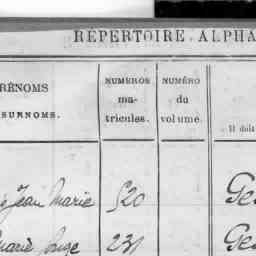 RÉPERTOIRE ALPHA
RÉNOMS
SURNOMS.
NUMÉROS
ma-
tricules.
NUMÉRO
du
volume.
Il doit
Jean Marie 520 Ge
Marie 231 Ge